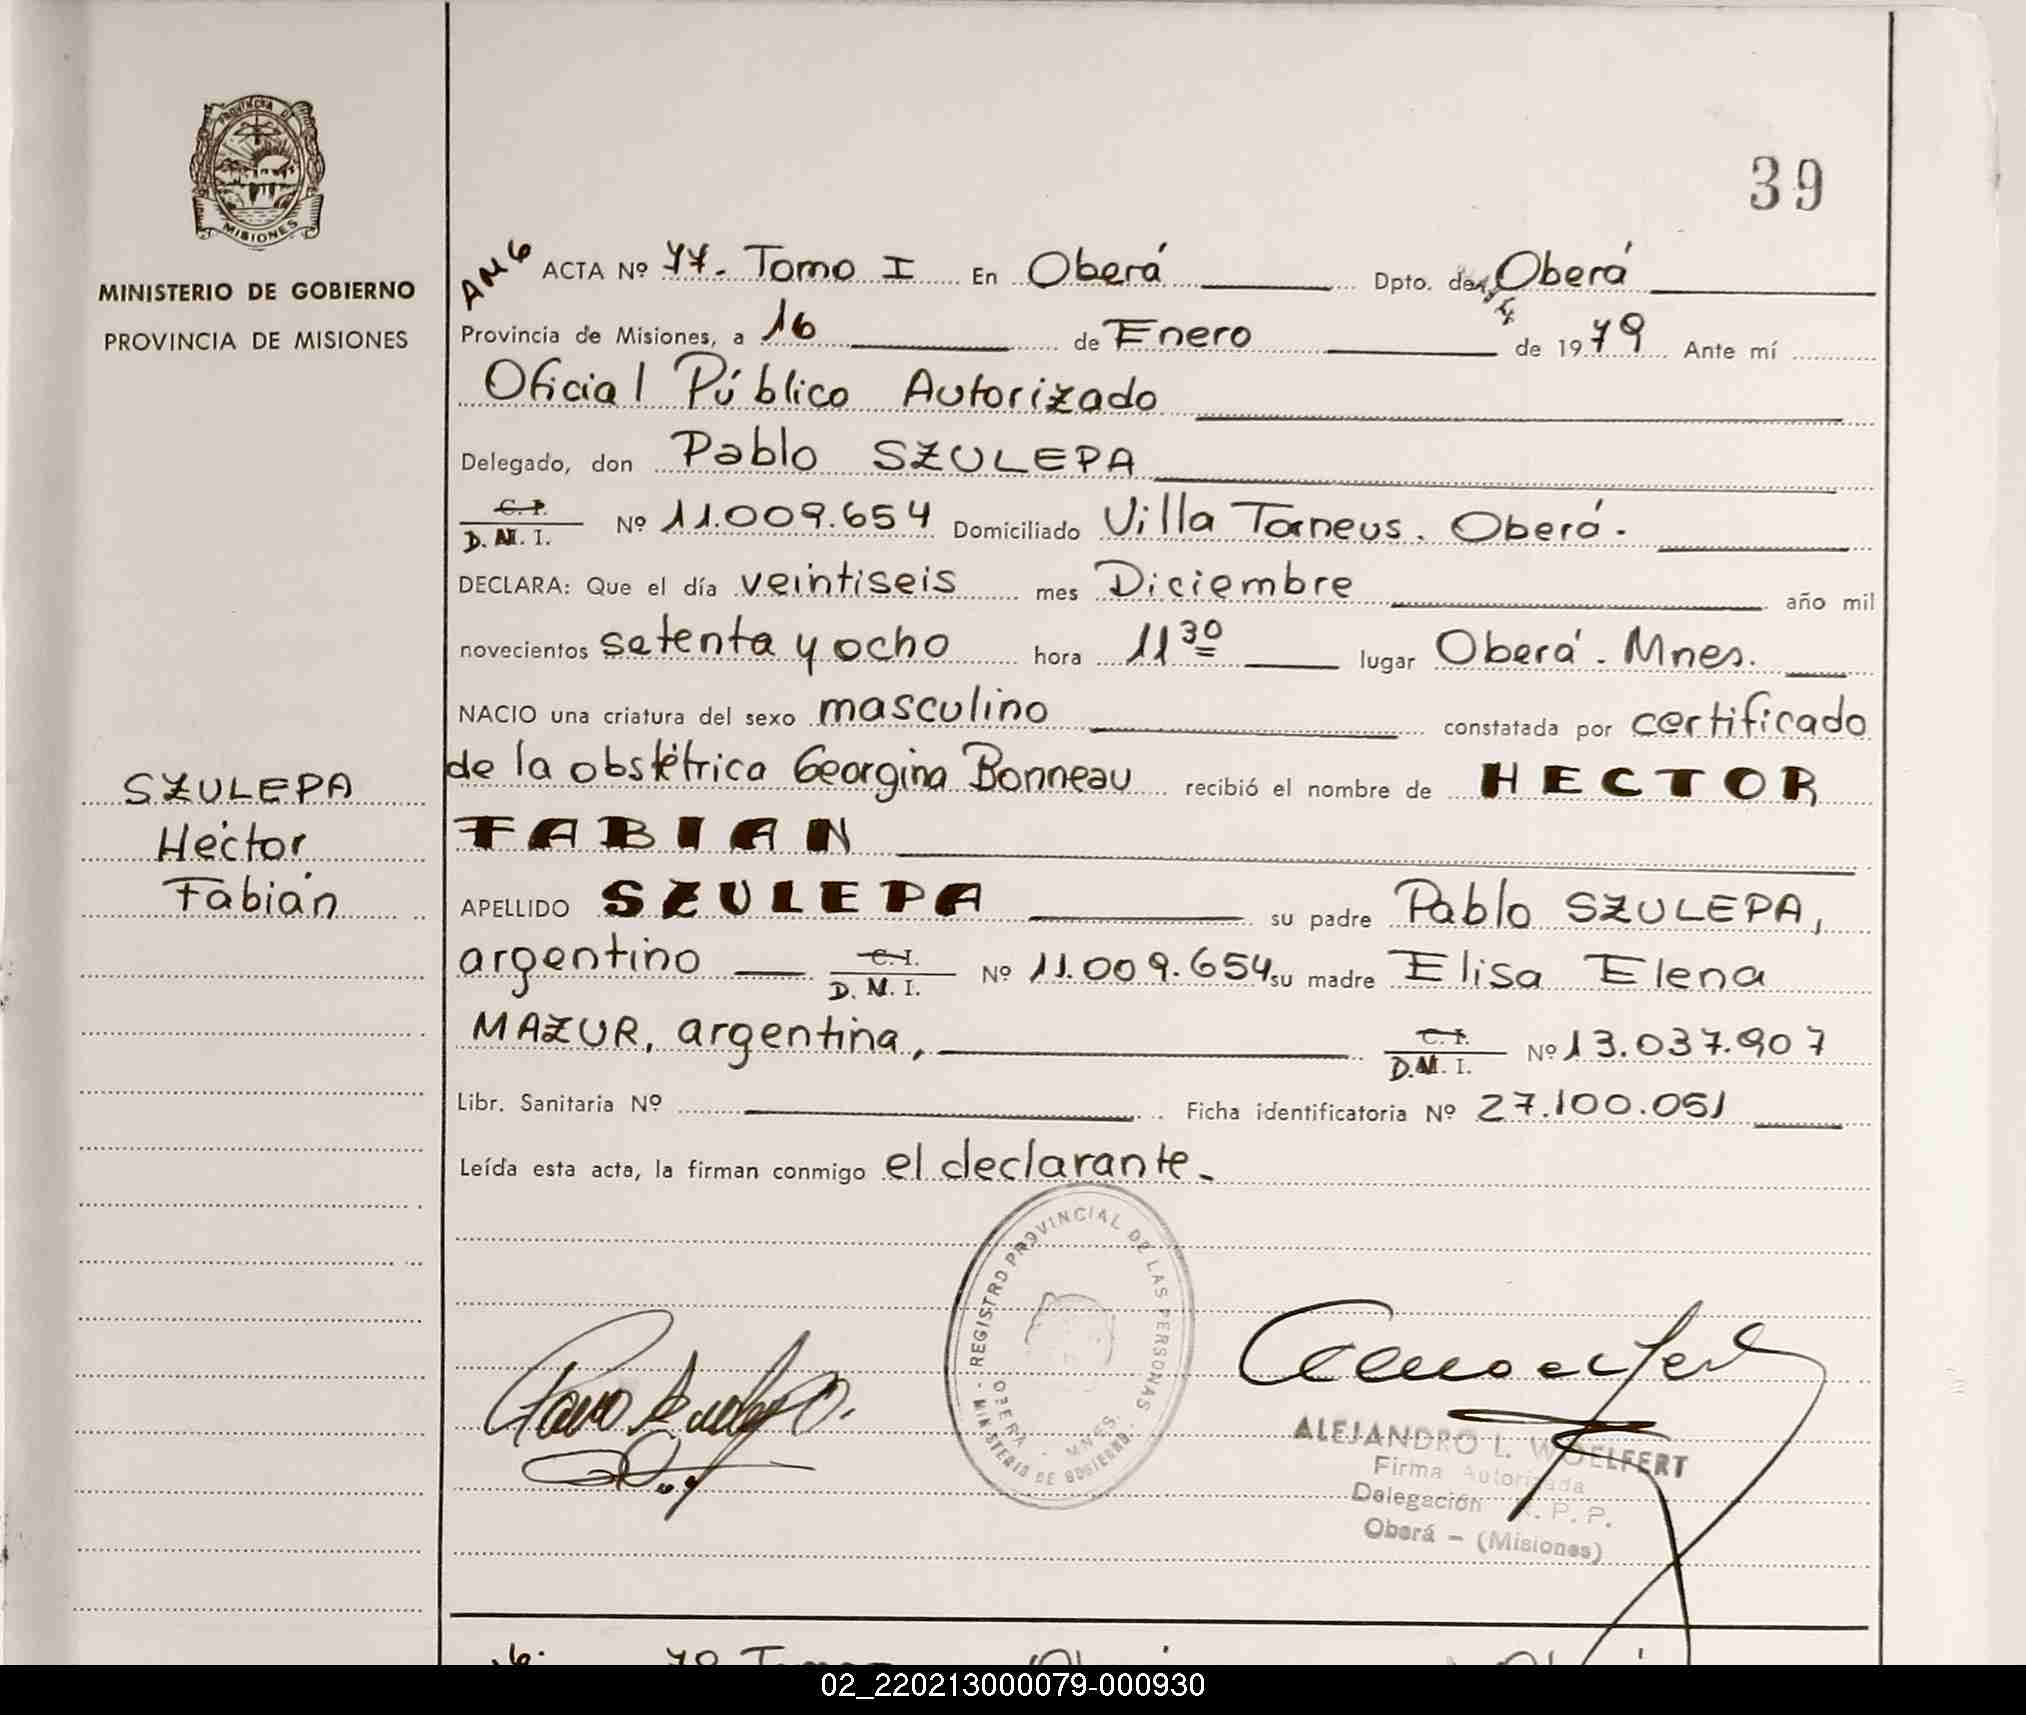 PROVINCIA DE
MISIONES
MINISTERIO DE GOBIERNO
PROVINCIA DE MISIONES
39
ACTA Nº 77. Tomo I En Oberá Dpto. de Oberá
Provincia de Misiones, a 16 de Enero de 1979 Ante mí
Oficial Público Autorizado
Delegado, don Pablo SZULEPA
C. I.
D. N. I. Nº 11.009.654 Domiciliado Villa Torneus. Oberá.
DECLARA: Que el día veintiseis mes Diciembre año mil
novecientos setenta y ocho hora 11 30 lugar Oberá. Mnes.
NACIO una criatura del sexo masculino constatada por certificado
de la obstétrica Georgina Bonneau recibió el nombre de HECTOR
FABIAN
SZULEPA
Héctor
Fabián
APELLIDO SZULEPA su padre Pablo SZULEPA,
argentino C. I.
D. N. I. Nº 11.009.654 su madre Elisa Elena
MAZUR, argentina, C. I.
D. N. I. Nº 13.037.907
Libr. Sanitaria Nº Ficha identificatoria Nº 27.100.051
Leída esta acta, la firman conmigo el declarante.
- REGISTRO PROVINCIAL DE LAS PERSONAS -
MINISTERIO DE GOBIERNO
OBERA - MNES.
ALEJANDRO L. WOELFERT
Firma Autorizada
Delegación R. P. P.
Oberá - (Misiones)
02_220213000079-000930